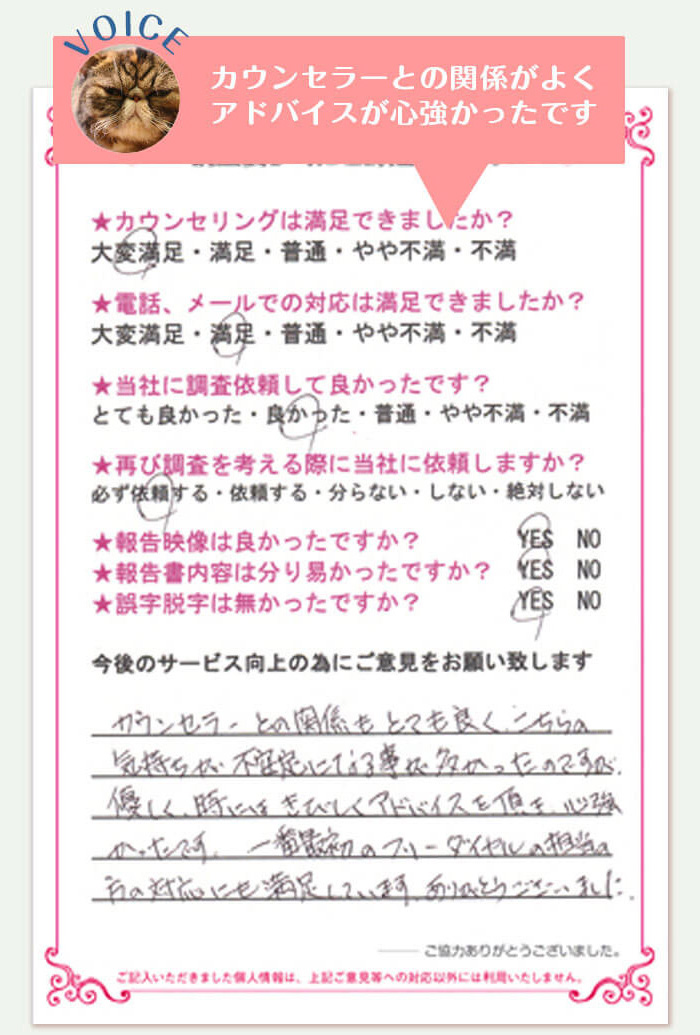 VOICE
カウンセラーとの関係がよく
アドバイスが心強かったです
★カウンセリングは満足できましたか？
大変満足・満足・普通・やや不満・不満
★電話、メールでの対応は満足できましたか？
大変満足・満足・普通・やや不満・不満
★当社に調査依頼して良かったです？
とても良かった・良かった・普通・やや不満・不満
★再び調査を考える際に当社に依頼しますか？
必ず依頼する・依頼する・分らない・しない・絶対しない
★報告映像は良かったですか？ YES NO
★報告書内容は分り易かったですか？ YES NO
★誤字脱字は無かったですか？ YES NO
今後のサービス向上の為にご意見をお願い致します
カウンセラーとの関係もとても良く、こちらの
気持ちが不安定になる事が多かったのですが、
優しく、時にはきびしくアドバイスを頂き、心強
かったです。一番最初のフリーダイヤルの担当の
方の対応にも満足しています。ありがとうございました。
ご協力ありがとうございました。
ご記入いただきました個人情報は、上記ご意見等への対応以外には利用いたしません。